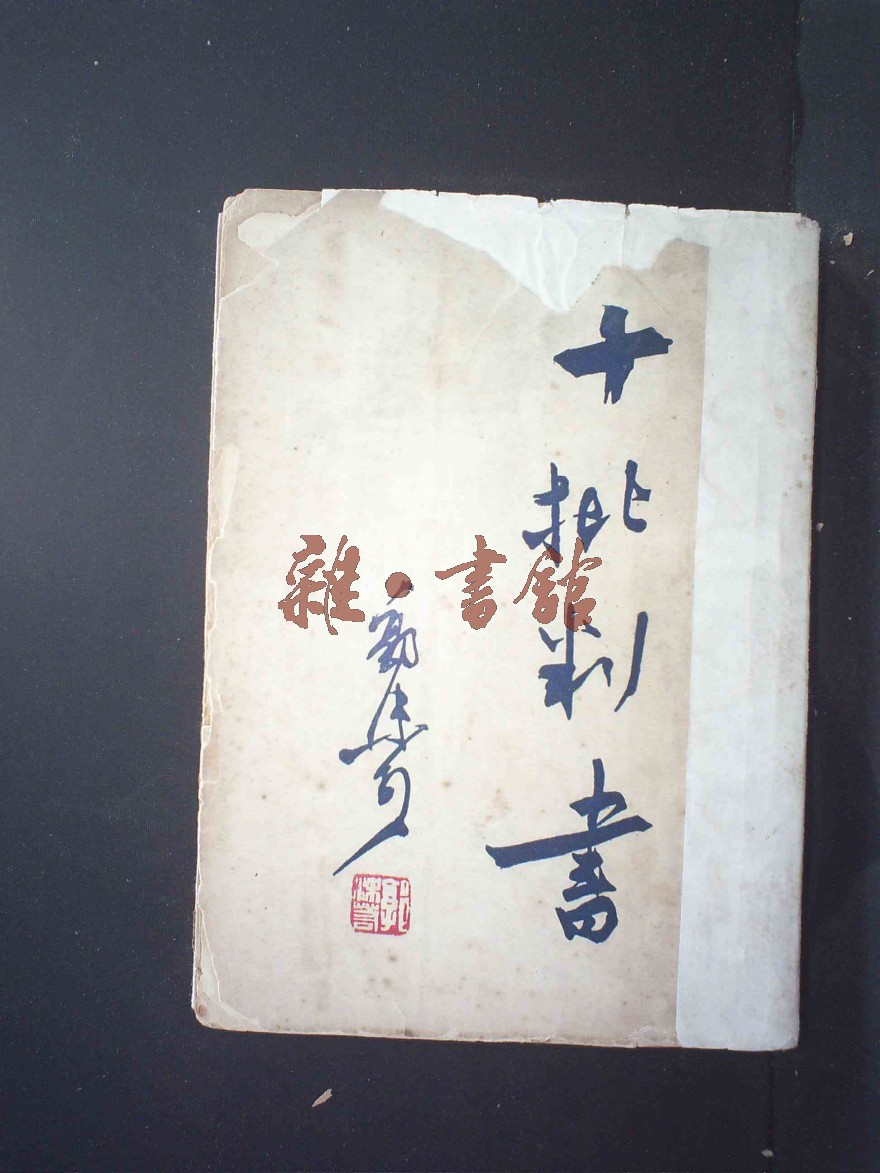 十批判书
郭沫若
郭沫若
雜·書館